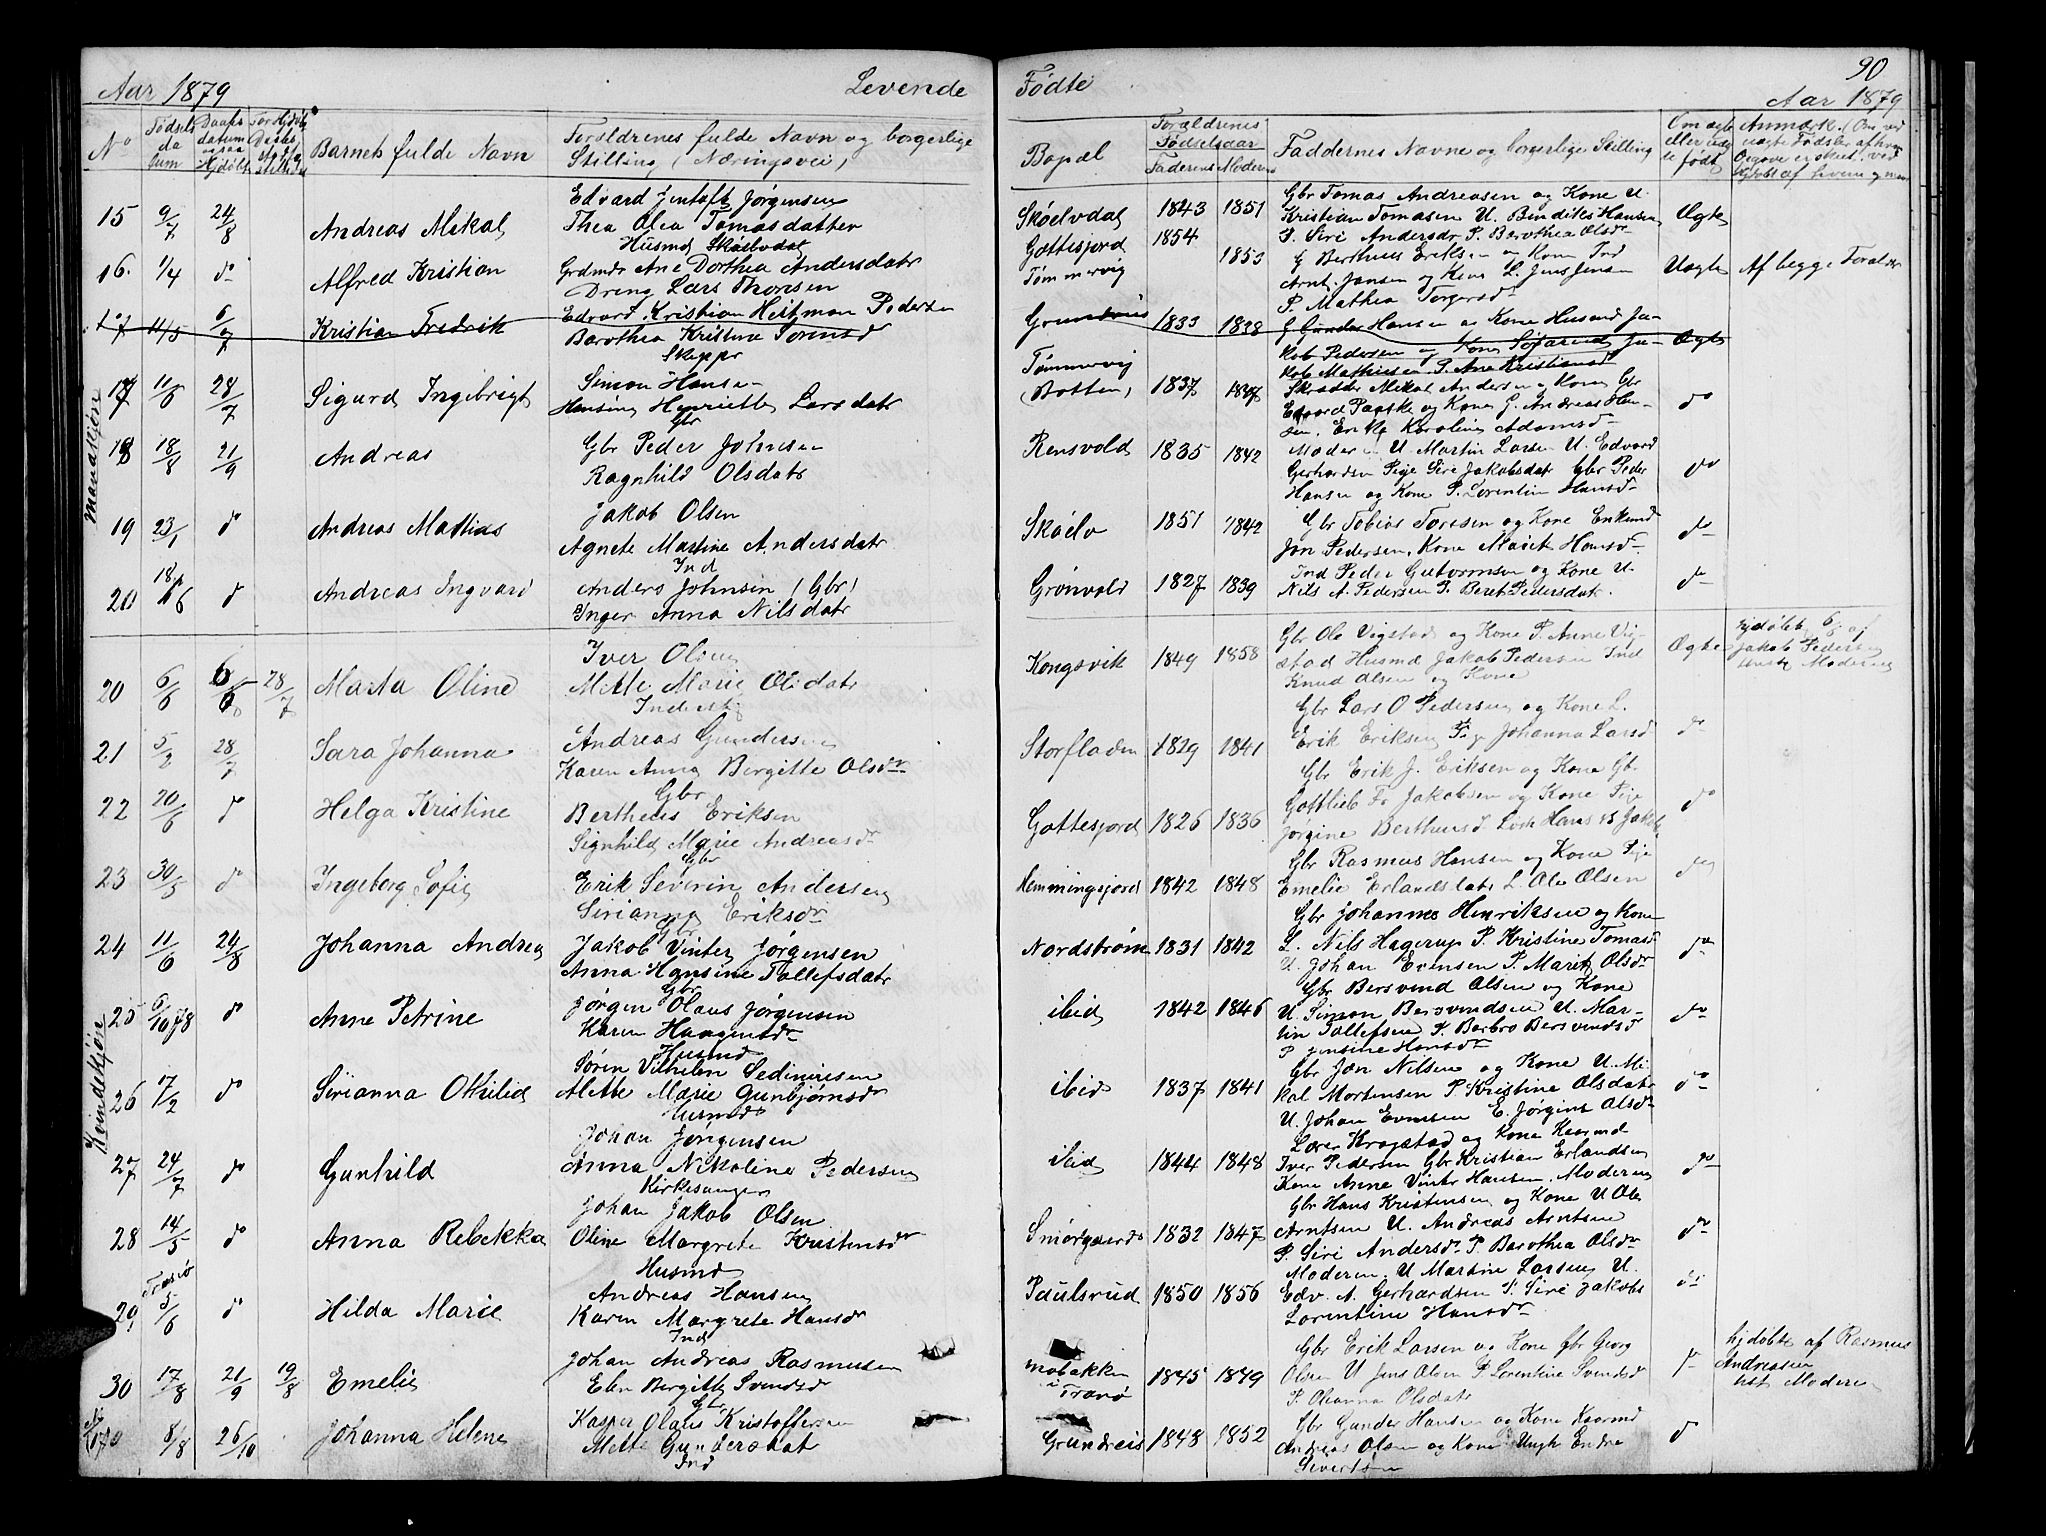 Aar 1879 Levende
Födte 90
Aar 1879
No
Födsels datum
Daabs datum
Barnets fulde Navn
Forældrenes fulde Navn og borgerlige Stilling (Næringsvei)
Bopæl
Forældrenes Fødselsaar
Faderens Moderens
Faddernes Navne og borgerlige Stilling
Om ægte eller uægte født
Mandkjøn
15 9/7 24/8 Andreas Mikal
Edvard Jentoft Jørgensen
Thea Olea Tomasdatter
Husmd Skoelvdal
Skoelvdal 1843 1851
Gbr Tomas Andreasen og Kone U.
Kristian Tomasen U. Bendiks Hansen
P. Siri Andersdr P. Barothea Olsdr
Ægte
16. 1/4 do Alfred Kristian
Grdmdr Ane Dorthea Andersdatr
Dreng Lars Thoresen
Gottesjord 1854
Tømmervig 1853
G Bertheus Eriksen og Kone Ind
Arnt Jensen og Kone L. Jens Jensen
P. Mathea Torgersdr
Uægte Af begge Forældre
17 11/5 6/7 Kristian Fredrik
Edvard Kristian Heitman Pedersen
Barothea Kristina Tomasd
Skippr
1833 1838
G Gunder Hansen og Kone Husmd Ja-
kob Pedersen og Kone
kob Mathiesen P. Ane Kristiansd
Ægte
17 11/6 28/7 Sigurd Ingebrigt
Simon Hansen
Hansine Henriette Larsdatr
Gbr
Tømmervig
(Botten) 1837 1837
Skrædder Mikal Andersen og Kone Gbr
Edvard Paaske og Kone G. Andreas Han-
sen. Enke Karoline Adamsd
do
18 18/8 21/9 Andreas
Gbr Peder Johnsen
Ragnhild Olsdatr
Rensvold 1835 1842
Moderen U Martin Larsen U. Edvard
Gerhardsen Pige Siri Jakobsdat Gbr Peder
Hansen og Kone P. Lorentine Hansd
do
19 23/1 do Andreas Mathias
Jakob Olsen
Agnete Martine Andersdatr
Ind
Skoelv 1851 1842
Gbr Tobias Toresen og Kone Enkemd
Jon Pedersen, Kone Marit Hansd
do
20 18/6 do Andreas Ingvard
Anders Johnsen (Gbr)
Inger Anna Nilsdatr
Grönvold 1827 1839
Ind Peder Guttormsen og Kone U.
Nils A. Pedersen P. Beret Pedersdatr.
do
Kvindekjøn
20 6/6 28/7 Marta Oline
Iver Olsen
Mette Marie Olsdatr
Inderst
Kongsvik 1849 1858
Gbr Ole Vigstad og Kone P. Anne Vig-
stad Husmd Jakob Pedersen Ind
Knud Olsen og Kone
Ægte
hjdøbt 6/6 af
Jakob Pedersen
hist Moderen
21 5/2 28/7 Sara Johanna
Andreas Gundersen
Karen Anna Bergitte Olsdr
Gbr
Storfladen 1829 1841
Gbr Lars O Pedersen og Kone L.
Erik Eriksen Pige Johanna Larsd
do
22 20/6 do Helga Kristine
Bertheus Eriksen
Signhild Marie Andreasdr
Gbr
Gottesjord 1826 1836
Gbr Erik J. Eriksen og Kone Gbr
Gottlieb Fr Jakobsen og Kone Pige
Jørgine Bertheusd
do
23 30/5 do Ingeborg Sofie
Erik Severin Andersen
Sirianna Eriksdr
Gbr
Hemmingsjord 1842 1848
Gbr Rasmus Hansen og Kone Pige
Emelie Erlandsdatr L. Ole Olsen
do
24 11/6 24/8 Johanna Andrea
Jakob Vinter Jørgensen
Anna Hansine Tollefsdatr
Gbr
Nordstrøm 1831 1842
Gbr Johannes Henriksen og Kone
L. Nils Hagerup P. Kristine Tomasd
U. Johan Evensen P. Marit Olsdr
do
25 6/10 78 do Anne Petrine
Jørgen Olaus Jørgensen
Karen Haagensdr
Husmd
ibid 1842 1846
Gbr Bersvend Olsen og Kone
U. Simon Bersvendsen U. Mar-
tin Tollefsen P. Berbro Bersvendsd
P. Jensine Hansdr
do
26 17/2 do Sirianna Otteled
Sörin Vilhelm Sedeniusen
Mette Marie Gunbjørnsdr
Husmd
ibid 1837 1841
Gbr Jon Nilsen og Kone U. Mi-
kal Mortensen P. Kristine Olsdatr
U. Johan Evensen E. Jørgine Olsdr
do
27 24/7 do Gunhild
Johan Jörgensen
Anna Nikoline Pedersen
Kirkesanger
ibid 1844 1848
Lærer Krogstad og Kone Kaarmd
Iver Pedersen Gbr Kristian Erlandsen
Kone Anne Vinter Hansen. Moderen
do
28 14/5 do Anna Rebekka
Johan Jakob Olsen
Oline Margrete Kristensdr
Husmd
Smörgaard 1832 1847
Gbr Hans Kristensen og Kone U Ole
Arntsen U. Andreas Arntsen
P. Siri Andersdr P. Barothea Olsdr
do
Tranø
29 5/6 do Hilda Marie
Andreas Hansen
Karen Margrete Hansdr
Ind
Paulsrud 1850 1856
Moderen. U Martin Larsen U.
Edv. A. Gerhardsen P. Siri Jakobs
Lorentine Hansdr
do
30 17/8 21/9 19/8 Emelie
Johan Andreas Rasmusen
Elen Bergitte Svendsd
Gbr
Mobakken
i Tranø 1845 1849
Gbr Erik Larsen og Kone Gbr Georg
Olsen U Jens Olsen P. Lorentine Svendsd
P. Oleanna Olsdatr
do
hjdøbt af Rasmus
Andreasen
hist Moderen
8/8 26/10 Johanna Helene
Kasper Olaus Kristoffersen
Mette Gundersdat
Ind
Grundreis 1848 1852
Gbr Gunder Hansen og Kone Kaarmd
Andreas Olsen og Kone Ungk Endre
Sivertsen
do